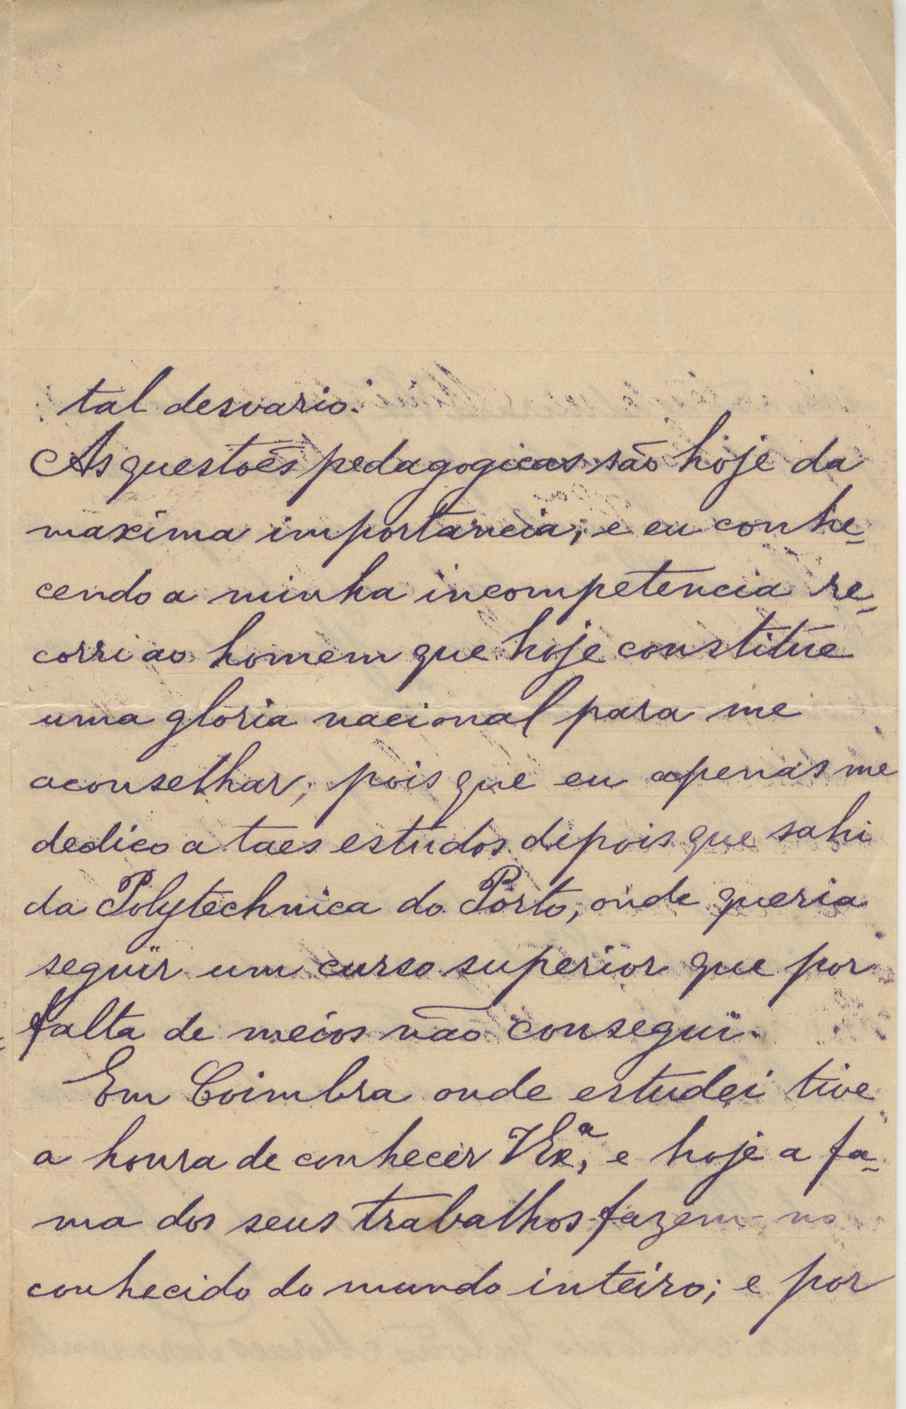 tal desvario.
As questoēs pedagogicas são hoje da
maxima importancia; e eu conhe-
cendo a minha incompetencia re-
corri ao homem que hoje constitúe
uma gloria nacional para me
aconselhar, pois que eu apenas me
dedico a taes estudos depois que sahi
da Polytechnica do Porto, onde queria
seguir um curso superior que por
falta de meios não consegui.
Em Coimbra onde estudei tive
a honra de conhecer VExª, e hoje a fa-
ma dos seus trabalhos fazem-no
conhecido do mundo inteiro; e por